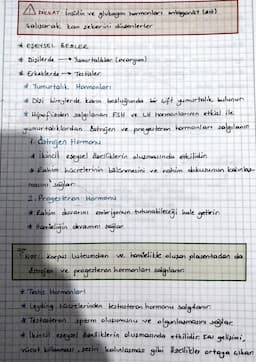 NOT: İnsülin ve glukagon hormonları antagonist (zıt)
çalışarak kan şekerini düzenlerler
* EŞEYSEL BEZLER
* Dişilerde → Yumurtalıklar (ovaryum)
* Erkeklerde → Testisler
* Yumurtalık Hormonları
* Dişi bireylerde karın boşluğunda bir çift yumurtalık bulunur.
* Hipofizden salgılanan FSH ve LH hormonlarının etkisi ile
yumurtalıklardan östrojen ve progesteron hormonları salgılanır.
1. Östrojen Hormonu
* İkincil eşeysel özelliklerin oluşmasında etkilidir.
* Rahim hücrelerinin bölünmesini ve rahim dokusunun kalınlaş-
masını sağlar.
2. Progesteron Hormonu
* Rahim duvarını embriyonun tutunabileceği hale getirir.
* Hamileliğin devamını sağlar
NOT: Korpus luteumdan ve hamilelikte oluşan plasentadan da
östrojen ve progesteron hormonları salgılanır.
* Testis Hormonları
* Leydig hücrelerinden testosteron hormonu salgılanır.
* Testosteron sperm oluşumunu ve olgunlaşmasını sağlar.
* İkincil eşeysel özelliklerin oluşmasında etkilidir. Kas gelişimi,
vücut kıllanması, sesin kalınlaşması gibi özellikler ortaya çıkar.